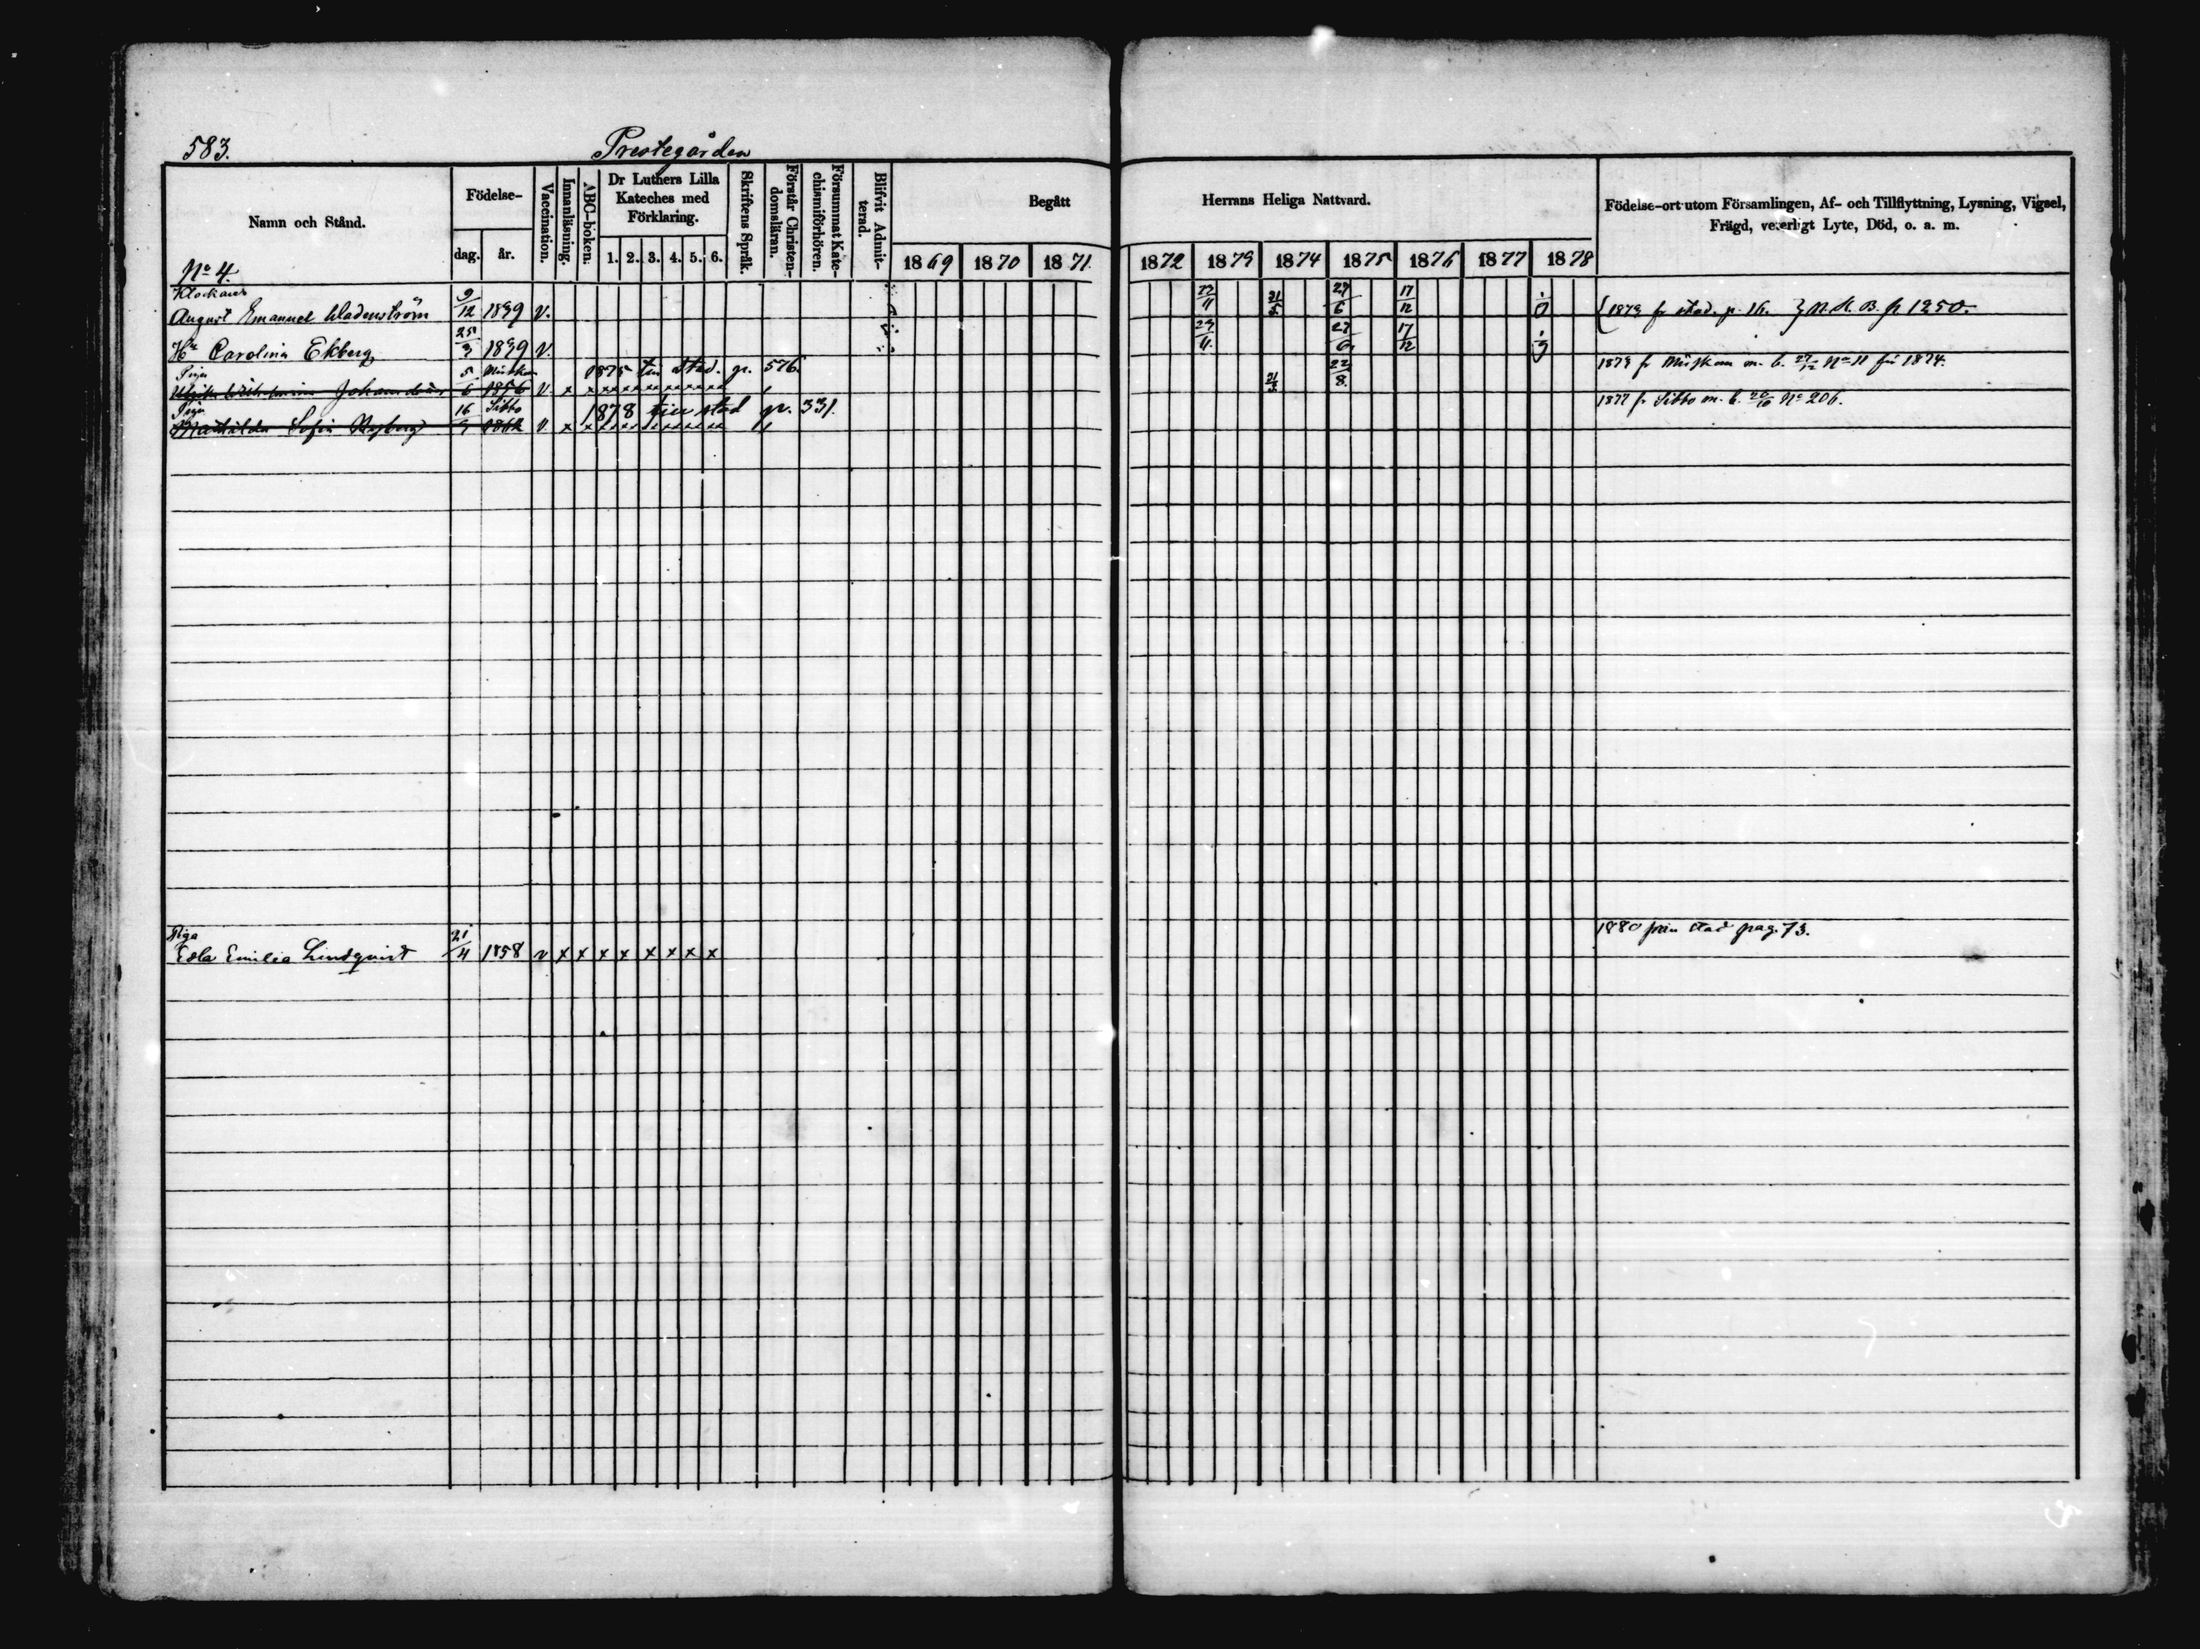 583. Prestegården
Namn och Stånd. Födelse- dag. år. Vaccination. Innanläsning. ABC-boken. Dr Luthers Lilla Kateches med Förklaring. 1. 2. 3. 4. 5. 6. Skriftens Språk. Förstår Christendomsläran. Försummat Katechismiförhören. Blifvit Admitterad. Begått Herrans Heliga Nattvard. Födelse-ort utom Församlingen, Af- och Tillflyttning, Lysning, Vigsel,
Frägd, verligt Lyte, Död, o. a. m.
1869 1870 1871 1872 1873 1874 1875 1876 1877 1878
No 4.
Klockaren
August Emanuel Wadenström 9/12 1839 v. 23/11 31/5 27/6 17/12 { 1873 fr stad. p. 16. } N. K. B. p 1250.
Hu Carolina Ekberg 25/3 1839 v. 23/11 27/6 17/12
Piga 1875 till stad. p. 576.
Johansdotter 5/6 1856 v. x x x x x x x x x x x x 31/5 22/8. 1873 fr m. b. 27/12 No 11 för 1874.
Piga Sibbo 1878 till stad p. 331.
Mathilda Sofia Nyberg 16/9 1862 v x x x x x x x x x x x x 1877 fr Sibbo m. b. 20/10 No 206.
Piga
Eola Emilia Lindqvist 21/4 1858 v x x x x x x x x 1880 från stad pag. 73.